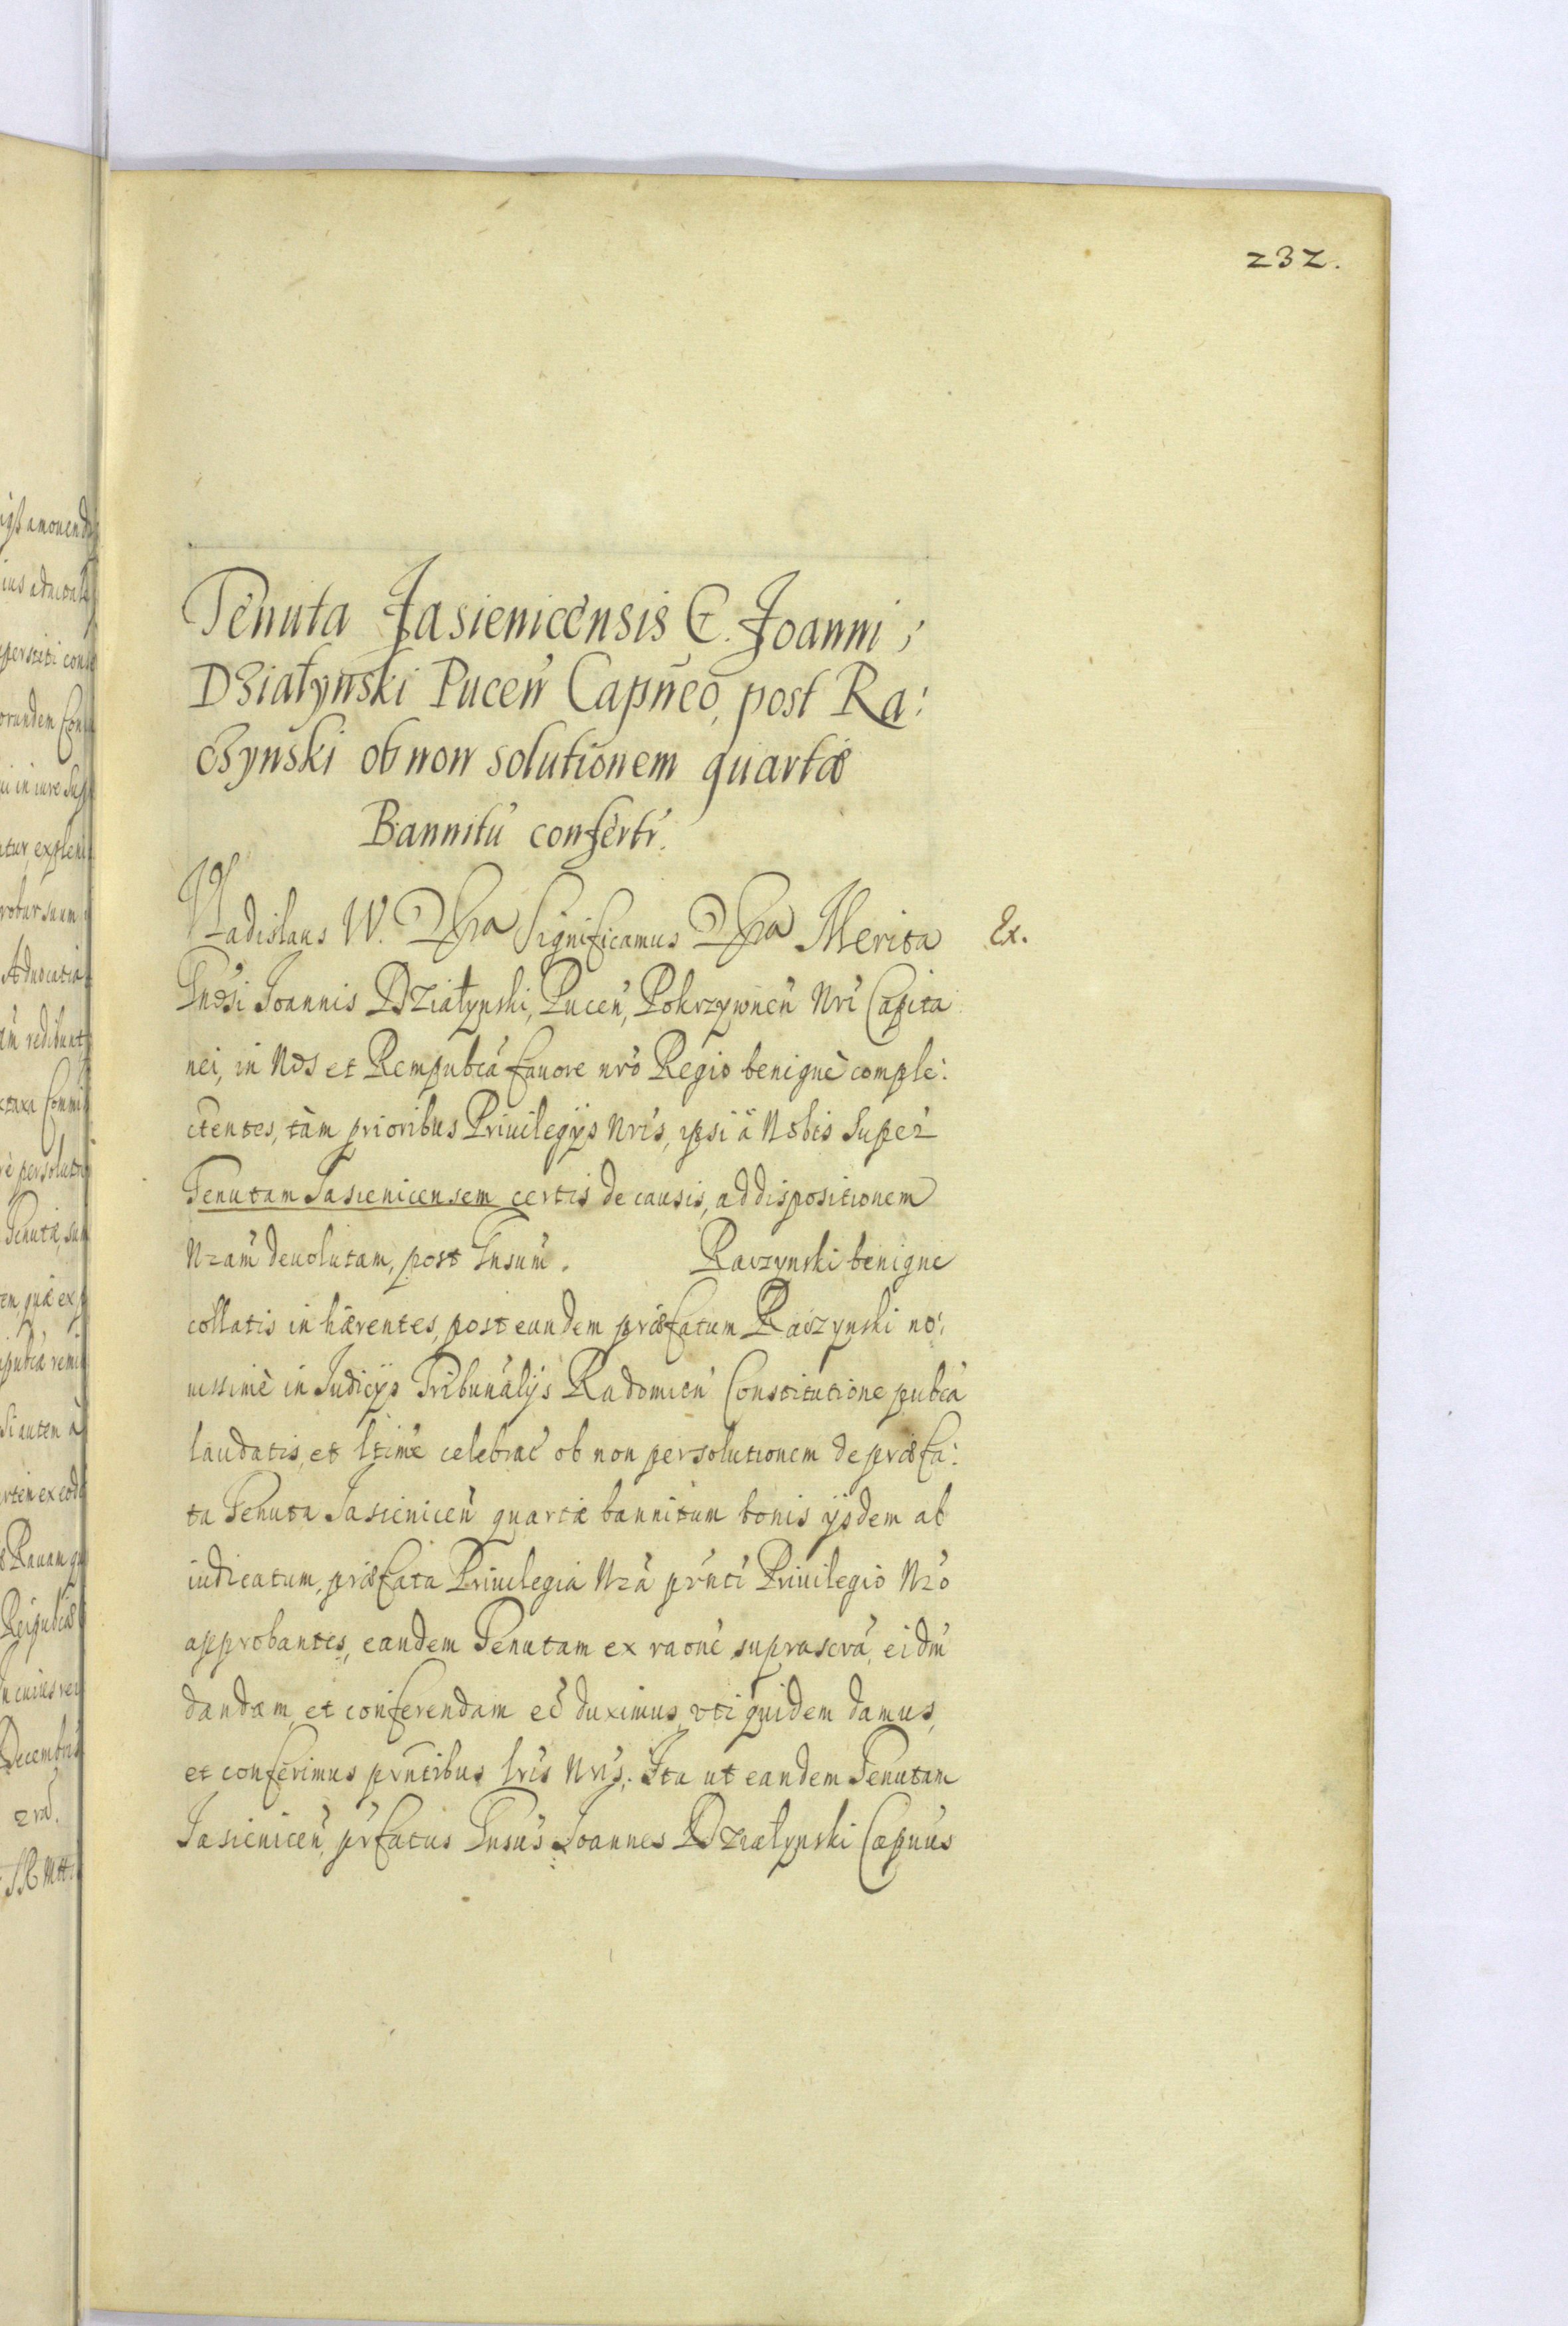 232.
Tenuta Jasienicensis G. Joanni
Działynski Pucen̄ Capn̄eo, post Ra:
czynski ob non solutionem quartæ
Bannitū confertr.
Vladislaus IV. Significamus Merita Ex.
Gn̄dsi Joannis Działynski, Pucen̄, Pokrzywnen̄ Nri Capita
nei, in Nos et Rempubcā fauore nrō Regio benignè comple:
ctentes, tàm prioribus Priuilegijs Nris, ipsi à Nobis super
Tenutam Jasienicensem certis de causis, ad dispositionem
Nram̄ deuolutam, post Gnsum̄. Raczynski benigne
collatis inhærentes, post eundem præfatum Raczynski no:
uissimè in Judicijs Tribunalijs Radomien̄ Constitutione pubcā
laudatis, et ltimè celebrat̄ ob non persolutionem de præfa:
ta Tenuta Jasienicen̄ quartæ bannitum bonis ijsdem ab
iudicatum, præfata Priuilegia Nrā prn̄ti Priuilegio Nrō
approbantes, eandem Tenutam ex raōne suprascrā, eidm̄
dandam, et conferendam eē duximus, vti quidem damus,
et conferimus prn̄tibus lris Nris. Ita ut eandem Tenutam
Jasienicen̄ prfatus Gnsūs Joannes Działynski Capnūs